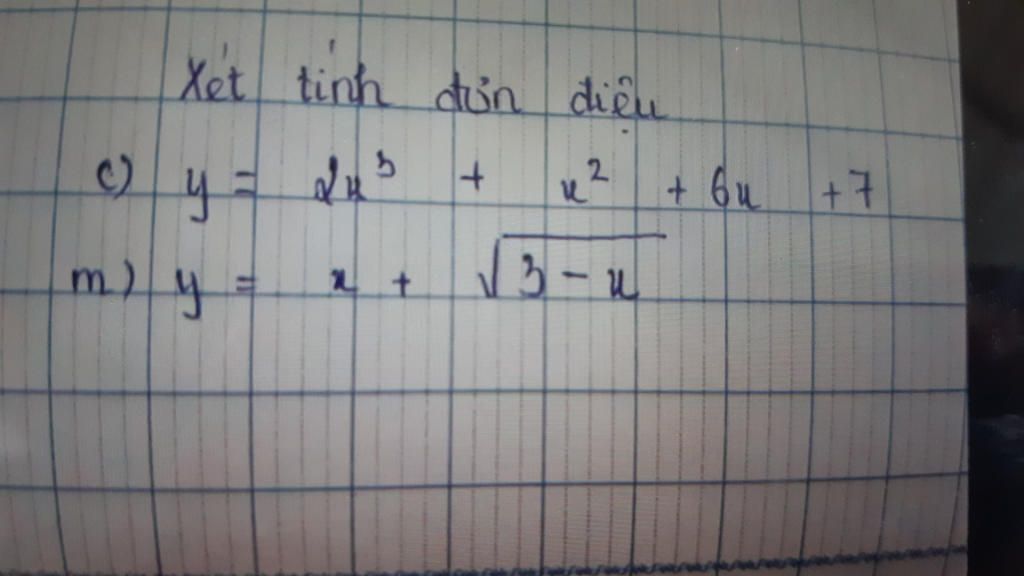 Xét tính đơn điệu
c) y = 2x³ + x² + 6x + 7
m) y = x + √3 - x